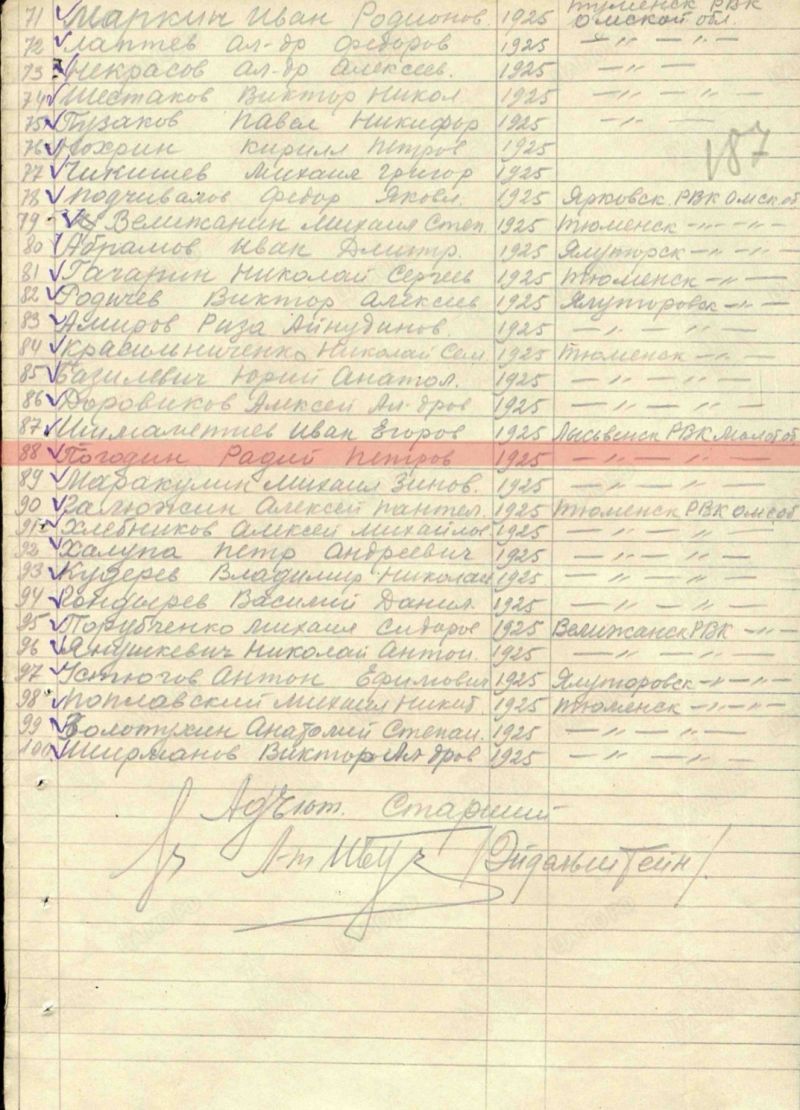 71 Маркин Иван Родионов. 1925 Тюменск РВК Омской обл.
72 Лаптев Ал-др Федоров 1925 — " —
73 Некрасов Ал-др Алексеев. 1925 — " —
74 Шестаков Виктор Никол 1925 — " — " —
75 Пузаков Павел Никифор 1925 — " —
76 Кирилл Петров 1925
187
77 Чикишев Михаил Григор 1925
78 Подчивалов Федор Яковл. 1925 Ярковск. РВК Омск об
79 Велижанин Михаил Степ. 1925 Тюменск — " — " —
80 Абрамов Иван Дмитр. 1925 Ялуторск — " — " —
81 Гачарин Николай Сергеев 1925 Тюменск — " —
82 Родичев Виктор Алексеев 1925 Ялуторовск — " —
83 Амиров Риза Айнудинов. 1925 — " — " —
84 Красильниченко Николай Сем 1925 Тюменск — " —
85 Базилевич Юрий Анатол. 1925 — " — " —
86 Доровиков Алексей Ал-дров 1925 — " — " —
87 Шималетцев Иван Егоров 1925 Лысьвенск РВК Молот об
88 Погодин Радий Петров 1925 — " — " —
89 Маракулин Михаил Зинов. 1925 — " — " —
90 Залюжин Алексей Пантел. 1925 Тюменск РВК Омс об
91 Хлебников Алексей Михайлов 1925 — " — " —
92 Халупа Петр Андреевич 1925 — " — " —
93 Кудерев Владимир Николаи 1925 — " — " —
94 Кондырев Василий Данил. 1925 — " — " —
95 Порубченко Михаил Сидоров 1925 Велижанск РВК — " —
96 Янушкевич Николай Антон. 1925 — " — " —
97 Устюгов Антон Ефимович 1925 Ялуторовск — " — " —
98 Поплавский Михаил Никит 1925 Тюменск — " — " —
99 Золотухин Анатолий Степан. 1925 — " — " —
100 Ширманов Виктор Ал-дров 1925 — " — " —
Адъют. Старший
Л-т /Эйдельштейн/